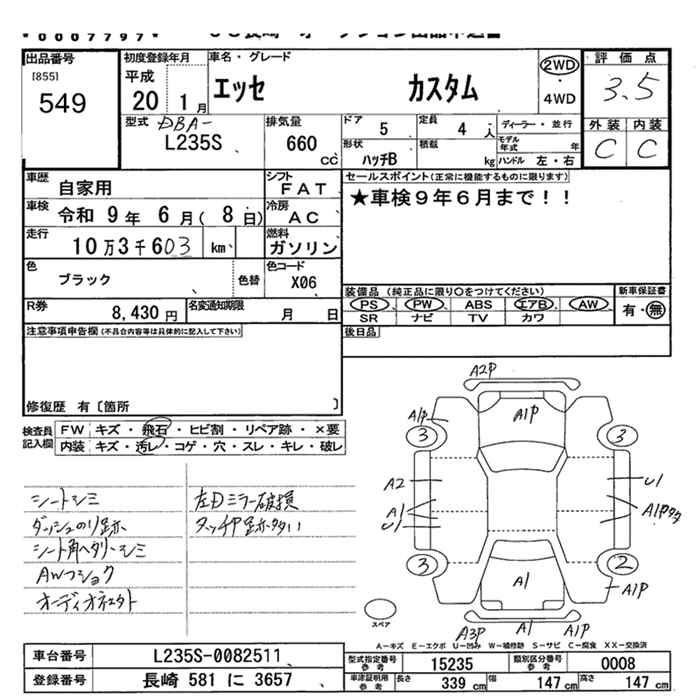 出品番号
[855]
549
初度登録年月
平成
20 1月
車名・グレード
エッセ カスタム
2WD
・
4WD
評価点
3.5
外装 内装
C C
型式 DBA-
L235S
排気量
660 cc
ドア 5
定員 4 人
形状 ハッチB
積載 kg
ディーラー・並行
モデル年式 年
ハンドル 左・右
車歴 自家用
シフト FAT
車検 令和 9年 6月( 8日)
冷房 AC
走行 10万3千603 km
燃料 ガソリン
色 ブラック 色替
色コード X06
R券 8,430円
名変通知期限 月 日
セールスポイント(正常に機能するものに限ります)
★車検9年6月まで!!
装備品 (純正品に限り○をつけてください)
PS PW ABS エアB AW
SR ナビ TV カワ
新車保証書
有・無
後日品
注意事項申告欄(不具合内容等は具体的に記入して下さい)
修復歴 有〔箇所 〕
検査員記入欄
FW キズ・飛石・ヒビ割・リペア跡・×要
内装 キズ・汚レ・コゲ・穴・スレ・キレ・破レ
シートシミ
ダッシュのり跡
シート角ヘタリ・シミ
AWフショク
左Dミラー破損
A2P
A1P
A1P
3
3
A2
U1
A1
U1
3
2
A1
A1P
A3P
A1
A1P
スペア
A－キズ E－エクボ U－凹み W－補修跡 S－サビ C－腐食 XX－交換済
車台番号 L235S-0082511
登録番号 長崎 581 に 3657
型式指定番号 参考 15235
類別区分番号 参考 0008
車庫証明用 参考 長さ 339 cm 幅 147 cm 高さ 147 cm